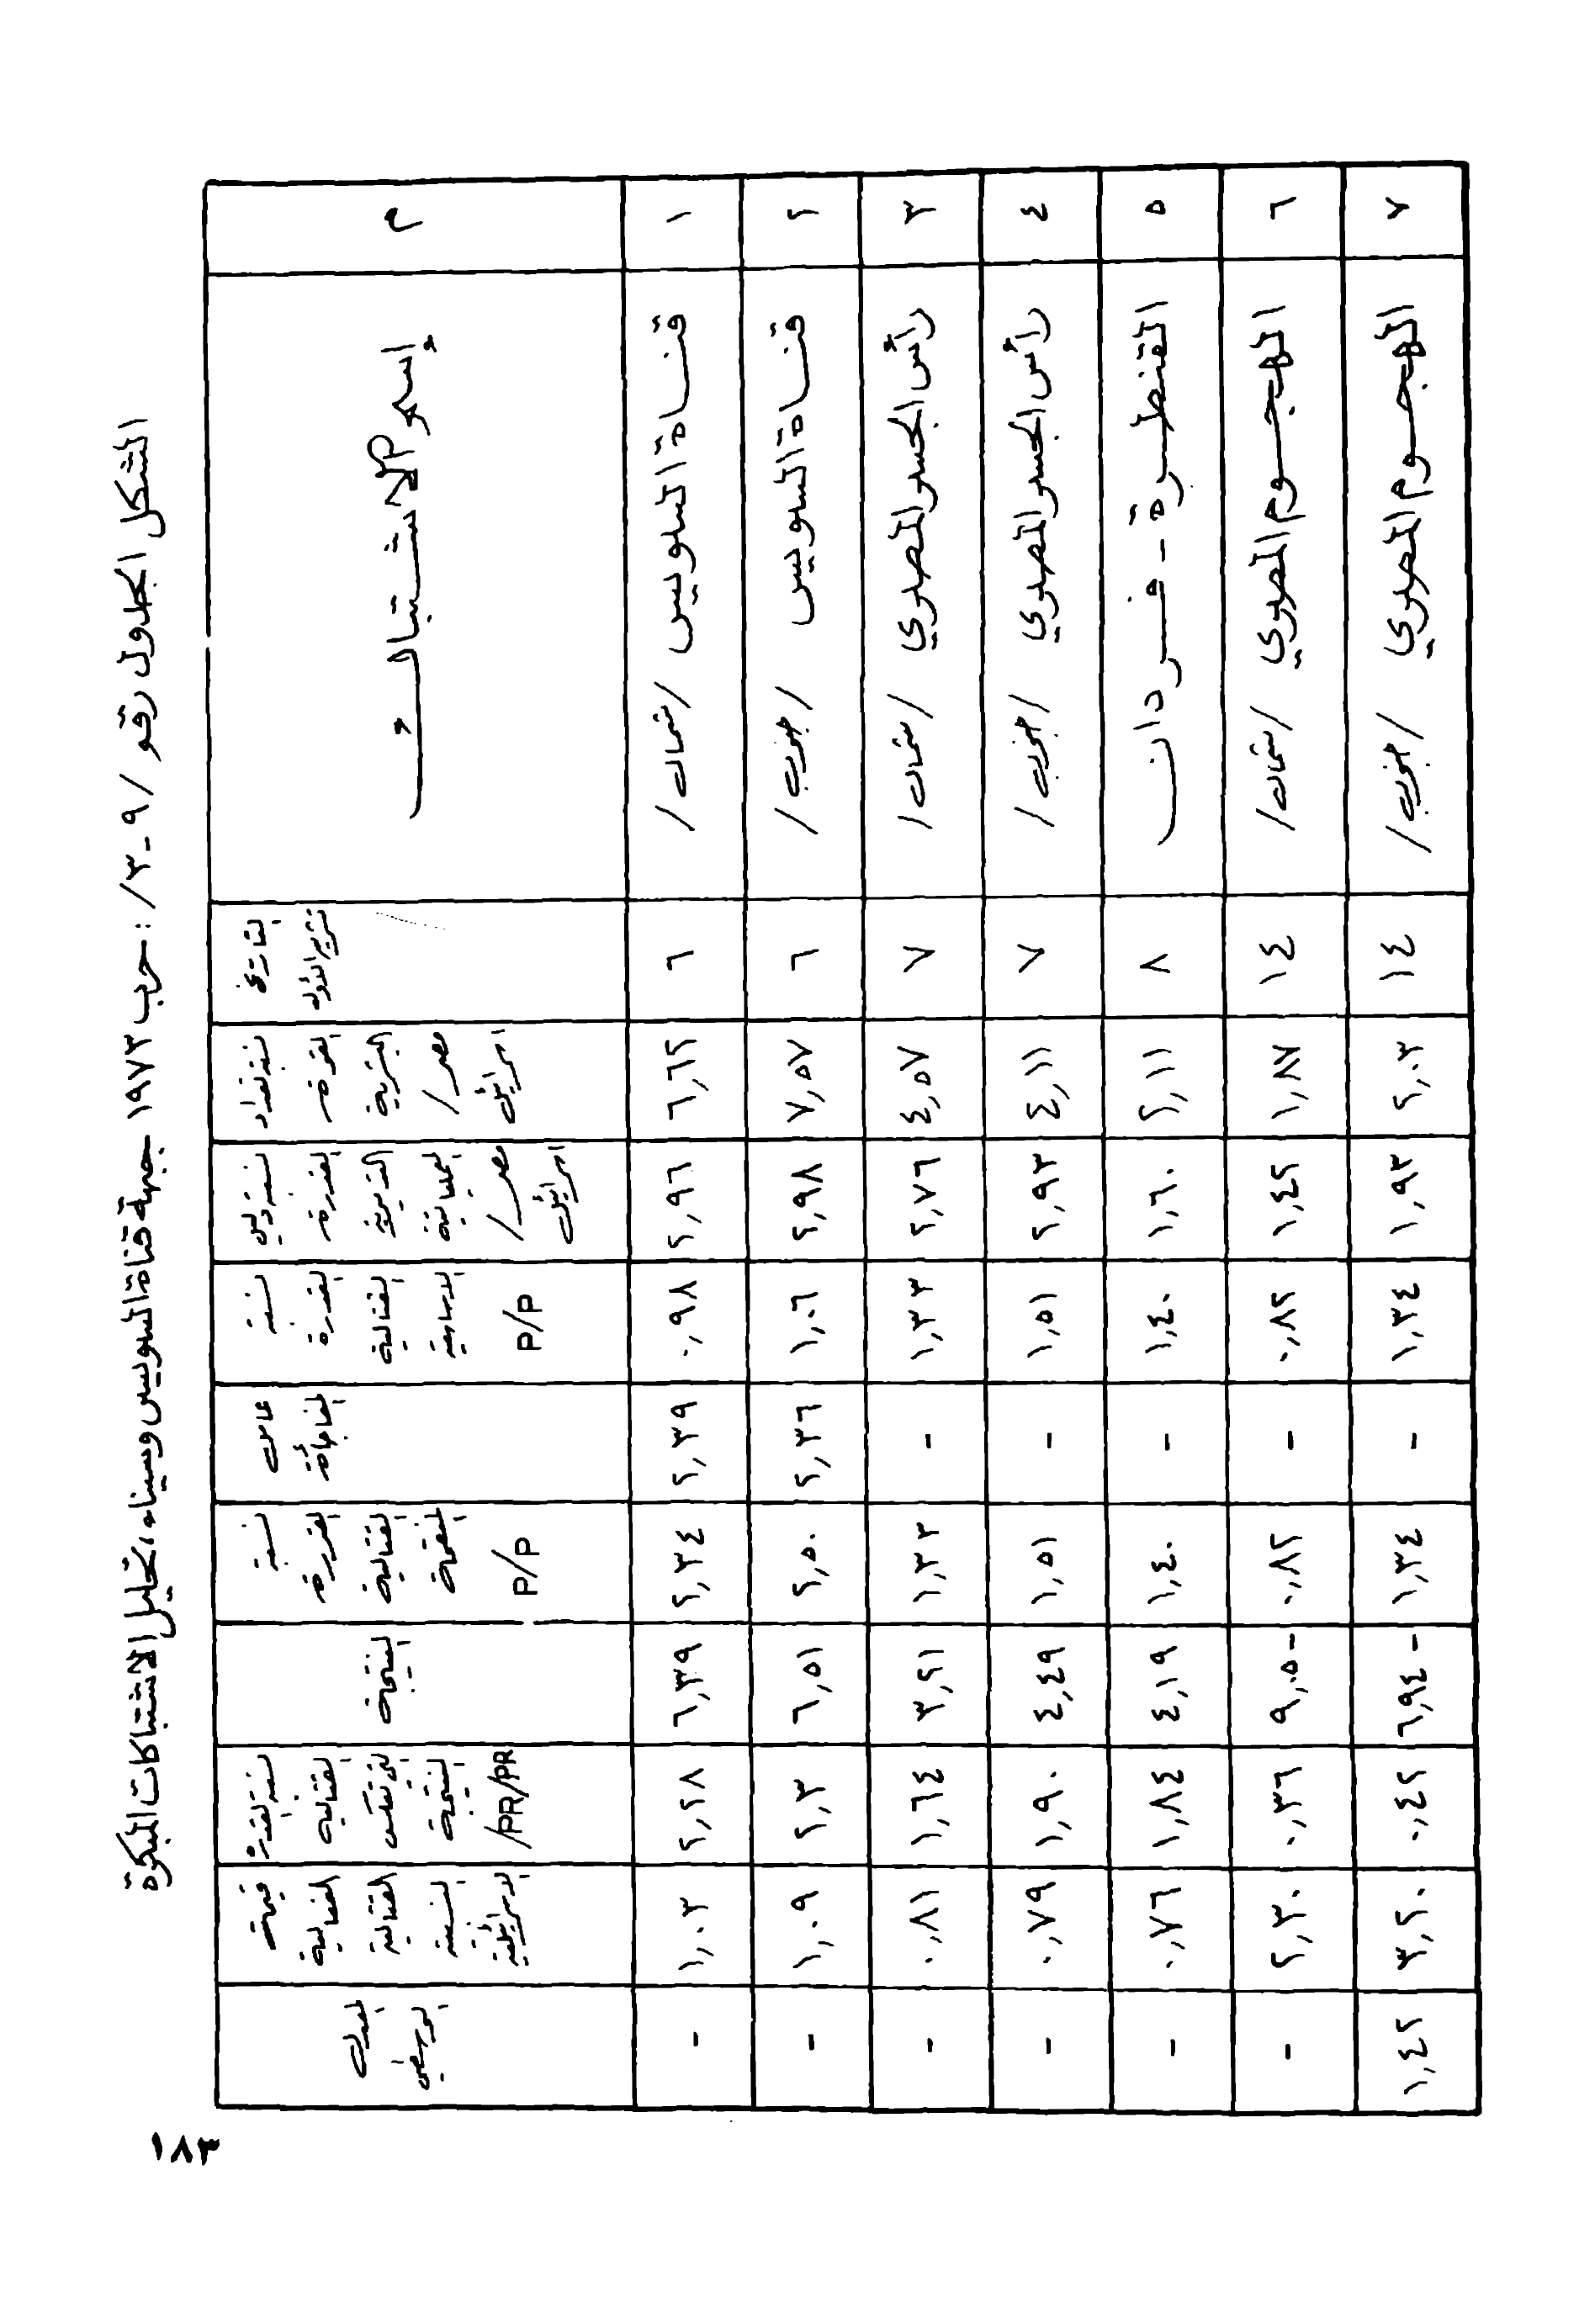 الشكل الجدول رقم /٩-٣/: حرب ١٩٧٣ جبهة قناة السويس وسيناء، تحليل الاشتباكات المبكرة
م | إسم الاشتباك | التاريخ تشرين الأول | نسبة تعداد القوة البشرية مصر/اسرائيل | نسبة القدرة النيرانية مصر/اسرائيل | نسبة القدرة القتالية الاساسية P/P | عامل المفاجأة | نسبة القدرة القتالية المنقحة P/P | النتيجة | نسبة القدرة القتالية التي تعكس النتيجة /PR/PR | قيمة الفعالية القتالية النسبية الاسرائيلية | المعدل الوسطي
١ | قناة السويس /شمال/ | ٦ | ٦,٦٢ | ٢,٩٦ | ٠,٩٨ | ٢,٣٩ | ٢,٣٤ | ٦,٣٩ | ٢,٢٨ | ١,٠٣ | -
٢ | قناة السويس /جنوب/ | ٦ | ٧,٥٧ | ٢,٩٨ | ١,٠٦ | ٢,٣٦ | ٢,٥٠ | ٦,٥١ | ٢,٣ | ١,٠٩ | -
٣ | رأس الجسر المصري /شمال/ | ٧ | ٤,٥٧ | ٢,٧٦ | ١,٣٣ | - | ١,٣٣ | ٣,٢١ | ١,٦٤ | ٠,٨١ | -
٤ | رأس الجسر المصري /جنوب/ | ٧ | ٤,١١ | ٢,٩٣ | ١,٥١ | - | ١,٥١ | ٤,٤٩ | ١,٩٠ | ٠,٧٩ | -
٥ | القنطرة - فردان | ٨ | ٢,١١ | ١,٦٠ | ١,٤٠ | - | ١,٤٠ | ٤,١٩ | ١,٨٤ | ٠,٧٦ | -
٦ | الهجوم المصري /شمال/ | ١٤ | ١,٨٧ | ١,٤٢ | ٠,٨٢ | - | ٠,٨٢ | ٩,٠٥- | ٠,٣٦ | ٢,٣٠ | -
٧ | الهجوم المصري /جنوب/ | ١٤ | ٢,٠٣ | ١,٩٣ | ١,٣٤ | - | ١,٣٤ | ٦,٩٤- | ٠,٤٢ | ٣,٢٠ | ١,٤٢
١٨٣